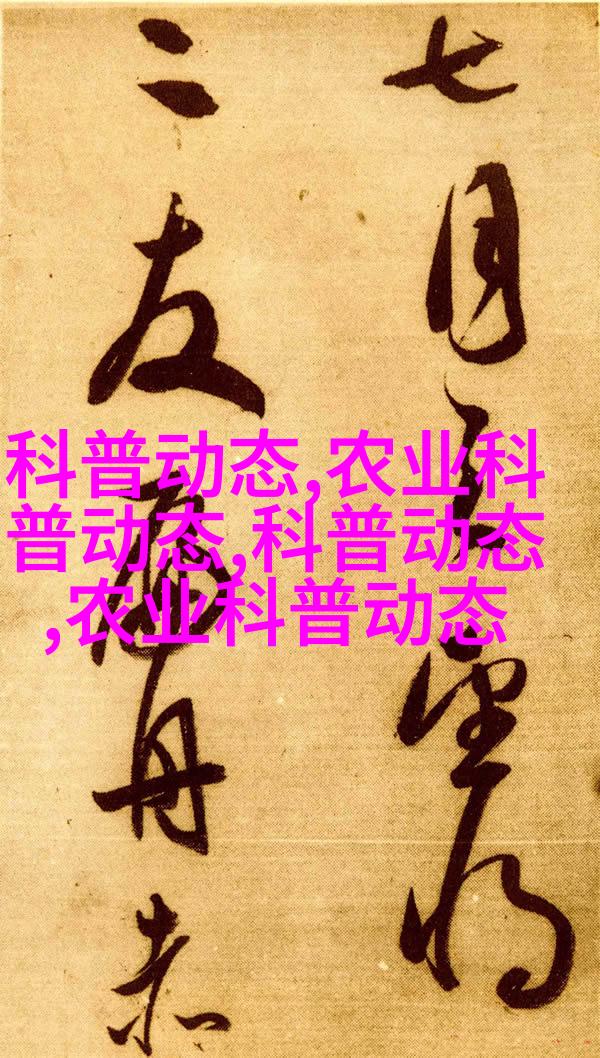 七月望将
二友舟赤
科普动态,农业科
普动态,科普动态
,农业科普动态